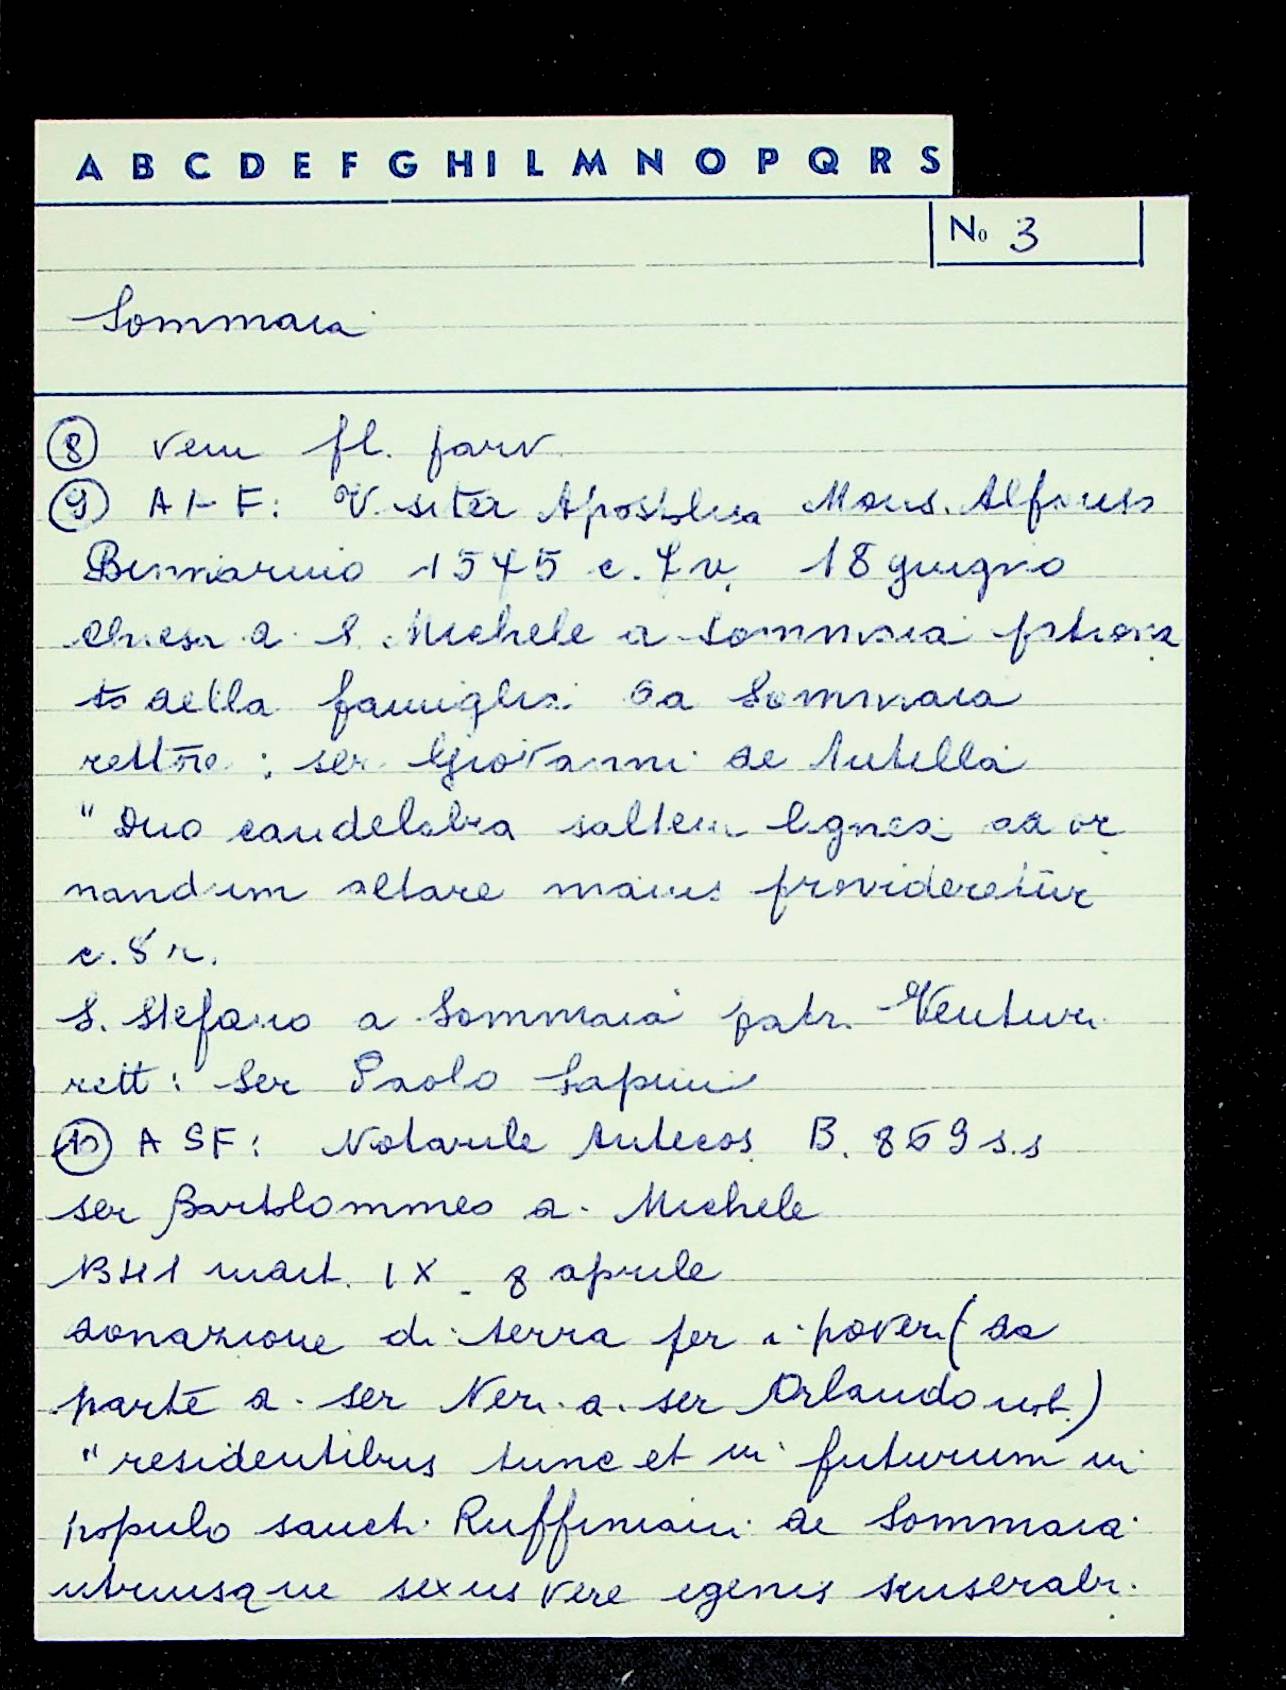 A B C D E F G H I L M N O P Q R S
No 3
Sommaia
8 vem fl. parv
9 A F: Visita Apostolica Mons. Alfonso
Binnarino 1575 c. 7 v 18 giugno
chiesa di S. Michele a Sommaia patrona
to della famiglia da Sommaia
rettore: ser Giovanni de Antella
" Duo candelabra saltem lignea ad or
nandum altare maius provideretur
c. 8 r.
S. Stefano a Sommaia patr. Venturi
rett: Ser Paolo Lapini
10 ASF: Notarile Antecos. B. 869 s.s
ser Bartolommeo di Michele
1341 ind. IX 8 aprile
donazione di terra per i poveri (da
parte di ser Neri di ser Orlando not.)
"residentibus tunc et in futurum in
populo sancti Ruffiniani de Sommaia
utriusque sexus vere egenis miserabi.